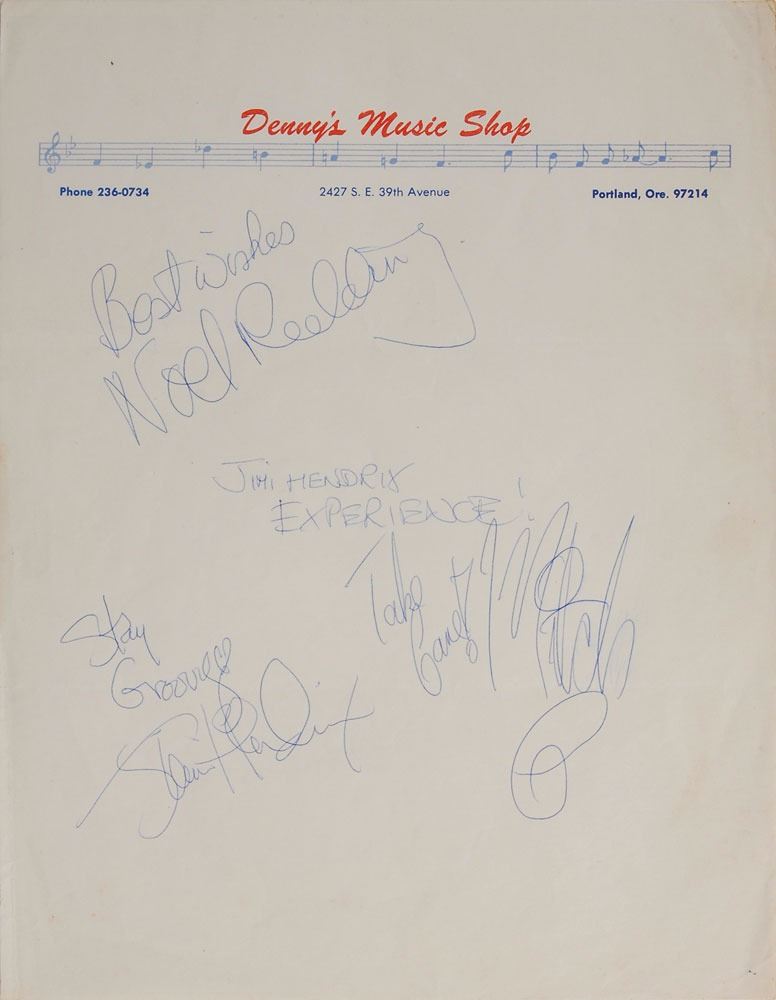 Denny's Music Shop
Phone 236-0734 2427 S. E. 39th Avenue Portland, Ore. 97214
Best wishes
Noel Redding
JIMI HENDRIX
EXPERIENCE!
Take
Care
Mitch
Stay
Groovy
Jimi Hendrix